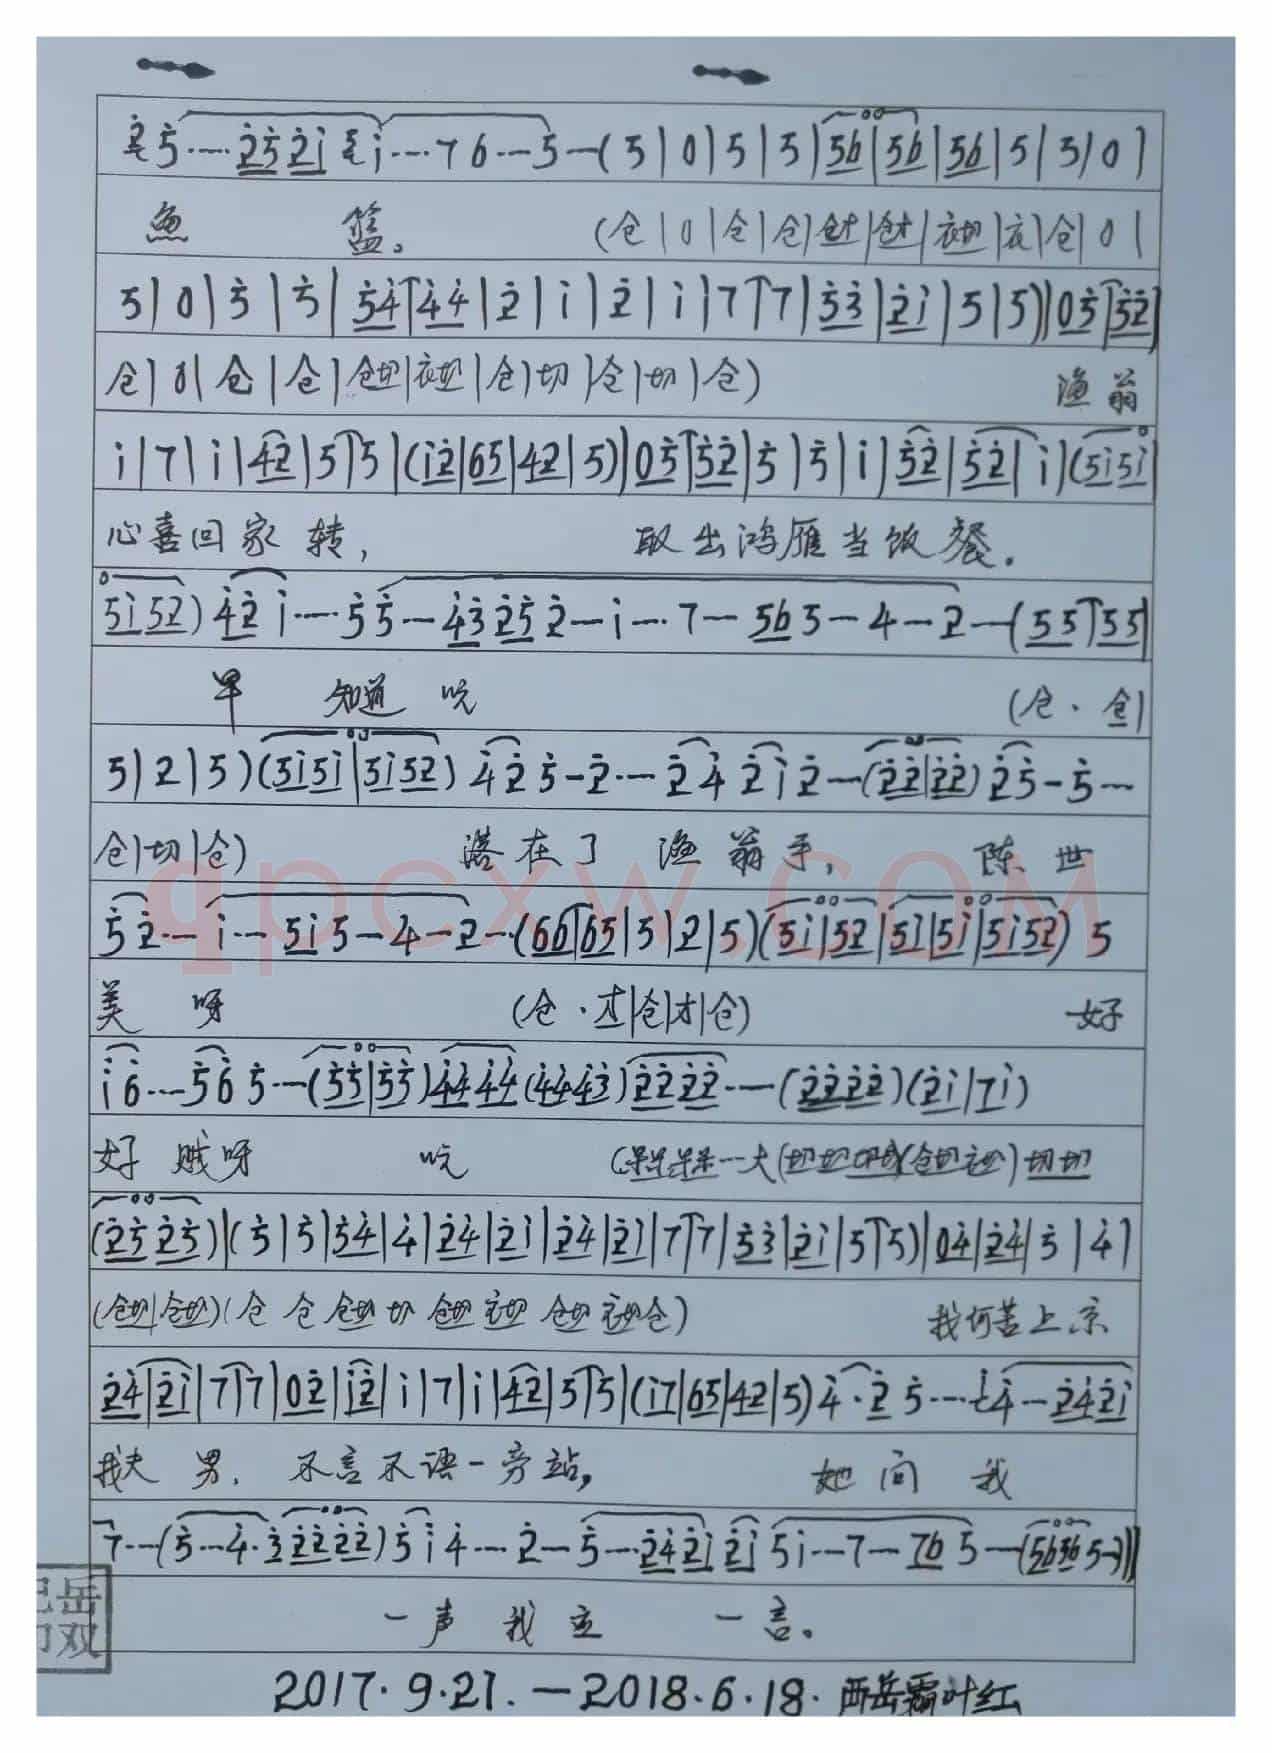 5····2̇5̇ 2̇i i····7 6···5—(5|0|5|5|56|56|56|5|5|0|
鱼 篮。 (仓|0|仓|仓|仓才|仓才|衣切|衣|仓|0|
5|0|5̇|5̇|5̇4̇|4̇4̇|2̇|i|2̇|i|7|7|5̇3̇|2̇i|5|5)|05̇|5̇2̇|
仓|0|仓|仓|仓切|衣切|仓|切|仓|切|仓) 渔翁
i|7|i|42|5|5|(i2̇|65|42|5)|05̇|5̇2̇|5̇|5̇|i|5̇2̇|5̇2̇|i|(5i5i
心喜回家转, 取出鸿雁当饭餐.
5i52) 4̇2̇ i····5̇5̇—4̇3̇ 2̇5̇ 2̇—i···7—56 5—4—2—(55|55|
早 知道 吃 (仓·仓|
5|2|5)(5i5i|5i52) 4̇2̇ 5̇-2̇···2̇4̇ 2̇i 2̇—(2̇2̇|2̇2̇) 2̇5̇-5̇···
仓|切|仓) 落在了 渔翁手, 陈世
5̇2̇···i···5i 5—4—2···(66|65|5|2|5)(5i|52|5i|5i|5i52) 5
美 呀 (仓·才|仓|才|仓) 好
i6···56 5···(5̇5̇|5̇5̇)4̇4̇ 4̇4̇(4̇4̇4̇3̇)2̇2̇ 2̇2̇····(2̇2̇2̇2̇)(2̇i|7i)
好 贼呀 吃
(2̇5̇ 2̇5̇)|(5̇|5̇|5̇4̇|4̇|2̇4̇|2̇i|2̇4̇|2̇i|7|7|5̇3̇|2̇i|5|5)|04̇|2̇4̇|5̇|4̇|
(仓切|仓切)(仓 仓 仓切 切 仓切 衣切 仓切 衣切仓) 我何苦上京
2̇4̇|2̇i|7|7|02̇|i2̇|i|7|i|42|5|5|(i7|65|42|5) 4̇·2̇ 5̇····4̇—2̇4̇2̇i
找夫 男. 不言不语一旁站, 她 问 我
7···(5̇—4̇·3̇ 2̇2̇ 2̇2̇) 5̇i 4̇···2̇—5̇···2̇4̇2̇i 2̇i 5i···7—76 5—(5656 5—)‖
一声 我 应 一 言。
2017.9.21.—2018.6.18. 西岳霜叶红
岳
双
qpcxw.com